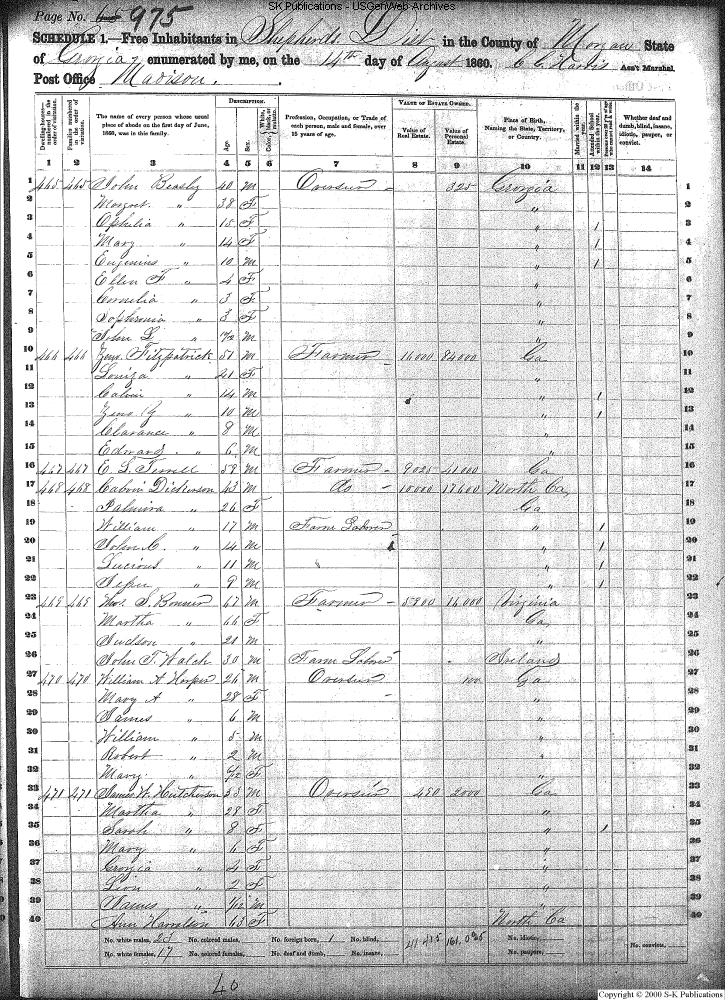 SK Publications - USGenWeb Archives
Page No. 65 975
SCHEDULE 1.—Free Inhabitants in Shepherds Dist in the County of Morgan State
of Georgia enumerated by me, on the 14th day of August 1860. C. C. Ass't Marshal.
Post Office Madison.
DESCRIPTION. VALUE OF ESTATE OWNED.
Dwelling-house—numbered in the order of visitation. Families numbered in the order of visitation. The name of every person whose usual place of abode on the first day of June, 1860, was in this family. Age. Sex. Color, White, black, or mulatto. Profession, Occupation, or Trade of each person, male and female, over 15 years of age. Value of Real Estate. Value of Personal Estate. Place of Birth, Naming the State, Territory, or Country. Married within the year. Attended School within the year. Whether deaf and dumb, blind, insane, idiotic, pauper, or convict.
1 2 3 4 5 6 7 8 9 10 11 12 13 14
1 465 465 John Beasly 40 M Overseer 325 Georgia 1
2 Margret " 38 F " 2
3 Ophelia " 15 F " 1 3
4 Mary " 14 F " 1 4
5 Eugenius " 10 M " 1 5
6 Ellen F " 4 F " 6
7 Cornelia " 3 F " 7
8 Sophronia " 3 F " 8
9 John L " /12 M " 9
10 466 466 Zeno. Fitzpatrick 51 M Farmer 16000 84000 Ga 10
11 Louiza " 41 F " 11
12 Calvin " 14 M " 1 12
13 Zeno " 10 M " 1 13
14 Clarance " 8 M " 14
15 Edward " 6 M " 15
16 467 467 E. S. Terrell 58 M Farmer 9025 41000 Ga 16
17 468 468 Calvin Dickerson 43 M Do 10000 17600 North Ca 17
18 Palmira " 26 F Ga 18
19 William " 17 M Farm Laborer " 1 19
20 John C. " 14 M " 1 20
21 Lucious " 11 M " 1 21
22 " 9 M " 1 22
23 469 469 S. Bonner 67 M Farmer 5800 16000 Virginia 23
24 Martha " 66 F Ga 24
25 Judson " 21 M " 25
26 John T. Walch 30 M Farm Laborer Ireland 26
27 470 470 William A Harper 26 M Overseer 100 Ga 27
28 Mary A " 28 F " 28
29 James " 6 M " 29
30 William " 5 M " 30
31 Robert " 2 M " 31
32 Mary " 6/12 F " 32
33 471 471 James W. Hutcherson 33 M Overseer 450 2000 Ga 33
34 Martha " 28 F " 34
35 Sarah " 8 F " 1 35
36 Mary " 6 F " 36
37 Georgia " 4 F " 37
38 " 2 F " 38
39 James " 1/12 M " 39
40 Ann 63 F North Ca 40
No. white males, 23 No. colored males, No. foreign born, 1 No. blind, No. idiotic,
No. white females, 17 No. colored females, No. deaf and dumb, No. insane, No. paupers, No. convicts,
40
Copyright © 2000 S-K Publications